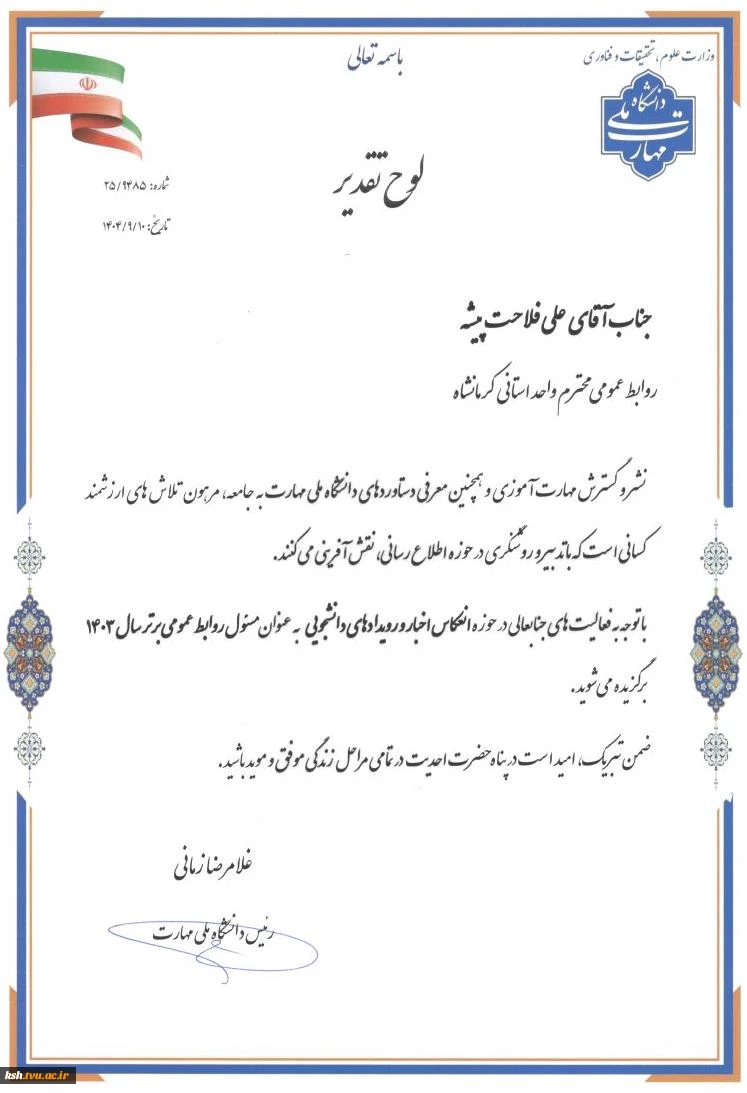 وزارت علوم، تحقیقات و فناوری
باسمه تعالی
دانشگاه ملی مهارت
لوح تقدیر
شماره: ۲۵/۹۴۸۵
تاریخ: ۱۴۰۴/۹/۱۰
جناب آقای علی فلاحت پیشه
روابط عمومی محترم واحد استانی کرمانشاه
نشر و گسترش مهارت آموزی و همچنین معرفی دستاوردهای دانشگاه ملی مهارت به جامعه، مرهون تلاش های ارزشمند
کسانی است که با تدبیر و روشنگری در حوزه اطلاع رسانی، نقش آفرینی می کنند.
با توجه به فعالیت های جنابعالی در حوزه انعکاس اخبار و رویدادهای دانشجویی به عنوان مسئول روابط عمومی برتر سال ۱۴۰۳
برگزیده می شوید.
ضمن تبریک، امید است در پناه حضرت احدیت در تمامی مراحل زندگی موفق و موید باشید.
غلامرضا زمانی
رئیس دانشگاه ملی مهارت
ksh.tvu.ac.ir